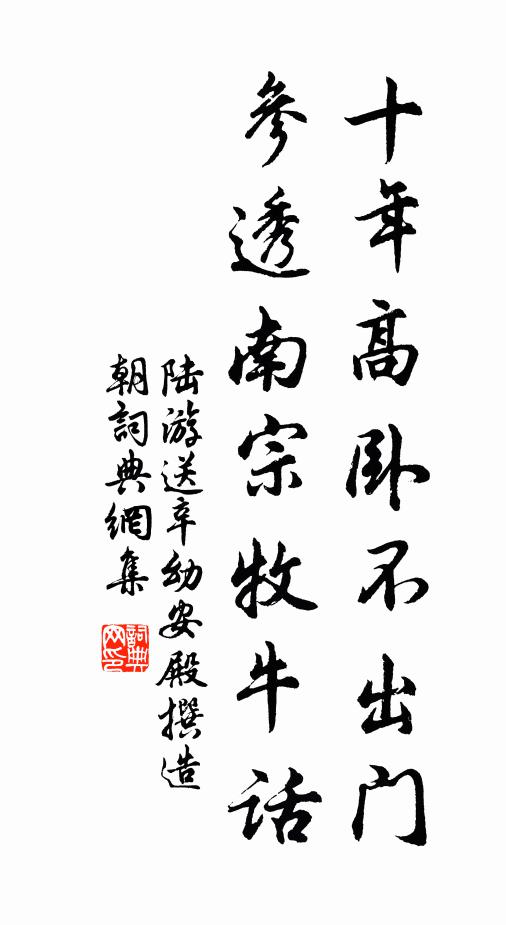 十年高卧不出門
參透南宗牧牛话
陆游送辛幼安殿撰造
朝詞典網集
詞典
网印